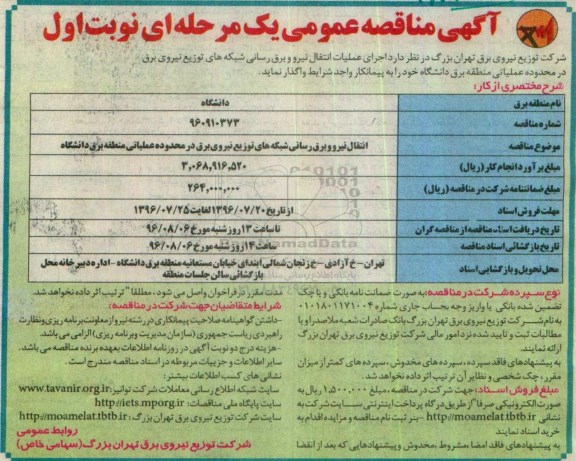 آگهی مناقصه عمومی یک مرحله ای نوبت اول
شرکت توزیع نیروی برق تهران بزرگ در نظر دارد اجرای عملیات انتقال نیرو و برق رسانی شبکه های توزیع نیروی برق
در محدوده عملیاتی منطقه برق دانشگاه خود را به پیمانکار واجد شرایط واگذار نماید.
شرح مختصری از کار:
نام منطقه برق دانشگاه
شماره مناقصه ۹۶۰۹۱۰۳۷۳
موضوع مناقصه انتقال نیرو و برق رسانی شبکه های توزیع نیروی برق در محدوده عملیاتی منطقه برق دانشگاه
مبلغ برآورد انجام کار (ریال) ۳,۰۶۸,۹۱۶,۵۲۰
مبلغ ضمانتنامه شرکت در مناقصه (ریال) ۲۶۴,۰۰۰,۰۰۰
مهلت فروش اسناد از تاریخ ۱۳۹۶/۰۷/۲۰ لغایت ۱۳۹۶/۰۷/۲۵
تاریخ دریافت اسناد مناقصه از مناقصه گران تا ساعت ۱۳ روز شنبه مورخ ۹۶/۰۸/۰۶
تاریخ بازگشائی اسناد مناقصه ساعت ۱۴ روز شنبه مورخ ۹۶/۰۸/۰۶
محل تحویل و بازگشایی اسناد تهران - خ آزادی - خ زنجان شمالی ابتدای خیابان سمنانیه منطقه برق دانشگاه - اداره دبیرخانه محل
بازگشائی سالن جلسات منطقه
نوع سپرده شرکت در مناقصه: به صورت ضمانت نامه بانکی و یا چک
تضمین شده بانکی یا واریز وجه به حساب جاری شماره ۰۱۰۱۸۰۱۱۷۱۰۰۴
به نام شرکت توزیع نیروی برق تهران بزرگ بانک صادرات شعبه ملاصدرا و یا
مطالبات ثبت و تایید شده نزد امور مالی شرکت توزیع نیروی برق تهران بزرگ
ارائه نمایند.
به پیشنهادهای فاقد سپرده، سپرده های مخدوش، سپرده های کمتر از میزان
مقرر، چک شخصی و نظایر آن ترتیب اثر داده نخواهد شد.
مبلغ فروش اسناد: جهت شرکت در مناقصه، مبلغ ۱,۵۰۰,۰۰۰ ریال به
صورت الکترونیکی صرفاً از طریق درگاه پرداخت اینترنتی سایت شرکت به
نشانی http://moamelat.tbtb.ir - بنر ثبت نام مناقصه و مزایده اقدام به
خرید اسناد نمایند
به پیشنهادهای فاقد امضا، مشروط، مخدوش و پیشنهادهایی که بعد از انقضا
مدت مقرر در فراخوان واصل می شود، مطلقاً ترتیب اثر داده نخواهد شد.
شرایط متقاضیان جهت شرکت در مناقصه:
-داشتن گواهینامه صلاحیت پیمانکاری در رشته نیرو از معاونت برنامه ریزی و نظارت
راهبردی ریاست جمهوری (سازمان مدیریت و برنامه ریزی) الزامی می باشد.
- هزینه درج دو نوبت آگهی در روزنامه اطلاعات بعهده برنده مناقصه می باشد.
سایر اطلاعات و جزییات مربوطه در اسناد مناقصه مندرج است.
نشانی های کسب اطلاعات بیشتر:
سایت شبکه اطلاع رسانی معاملات شرکت توانیر www.tavanir.org.ir
سایت پایگاه ملی مناقصات: http://iets.mporg.ir
سایت شرکت توزیع نیروی برق تهران بزرگ: http://moamelat.tbtb.ir
روابط عمومی
شرکت توزیع نیروی برق تهران بزرگ (سهامی خاص)